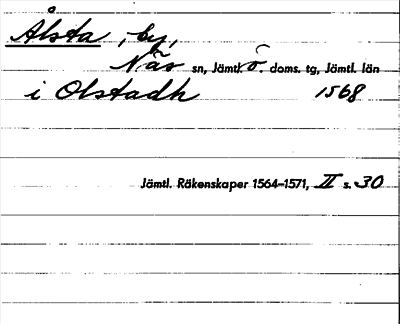 Ålsta, by,
Näs sn, Jämtl. ö. doms. tg, Jämtl. län
i Olstadh 1568
Jämtl. Räkenskaper 1564–1571, II s. 30